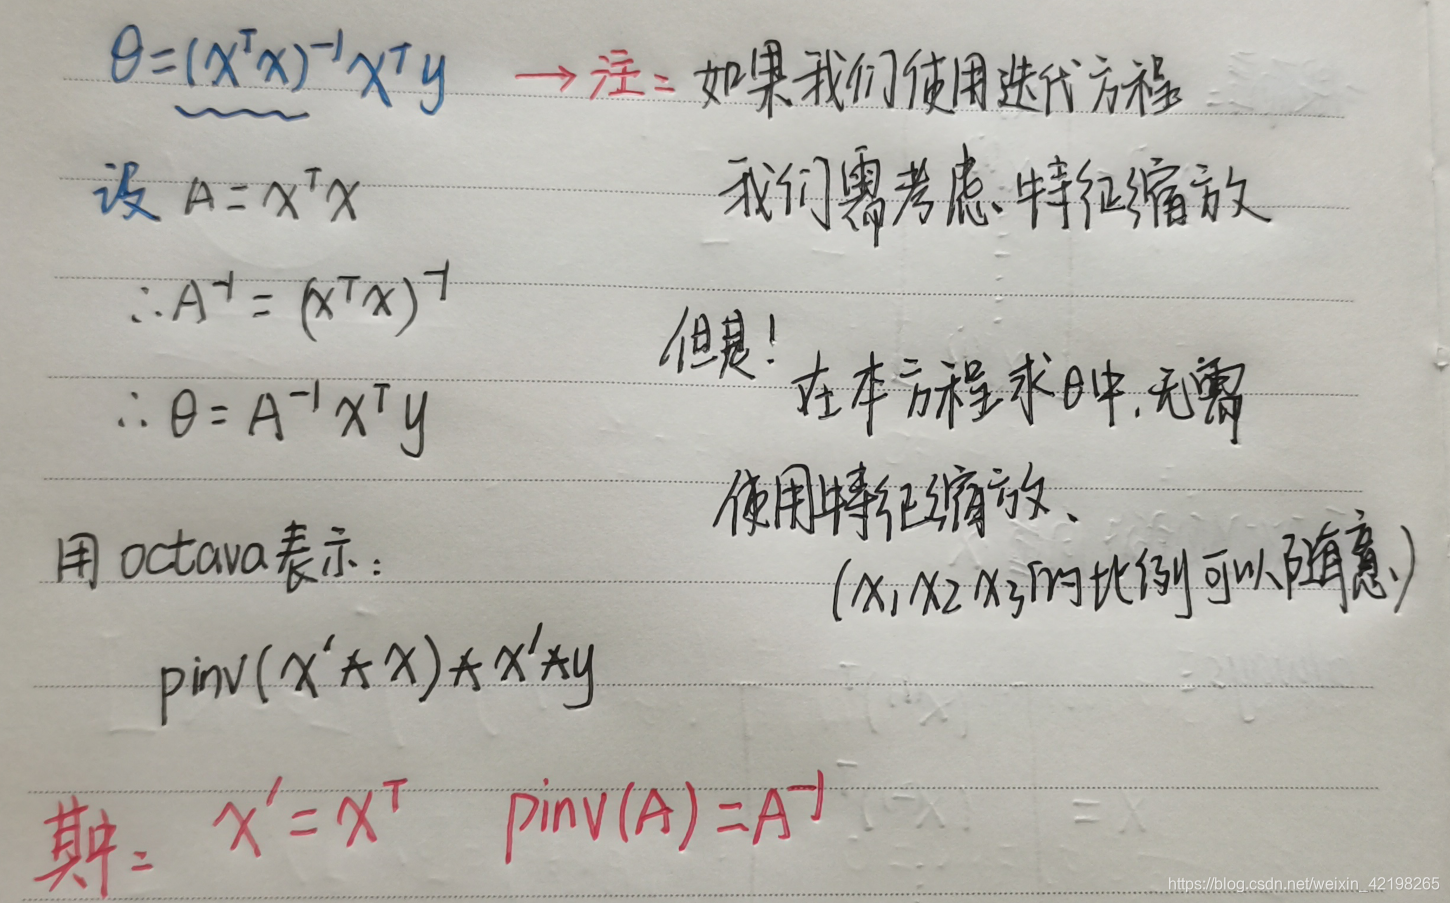 θ=(X^T X)^-1 X^T y → 注: 如果我们使用迭代方程
我们需考虑、特征缩放
设 A = X^T X
∴ A^-1 = (X^T X)^-1
但是!
在本方程求θ中,无需
∴ θ = A^-1 X^T y
使用特征缩放、
用 octava表示:
(x₁ x₂ x₃的比例可以随意、)
pinv(X'*X)*X'*y
其中: X' = X^T pinv(A) = A^-1
https://blog.csdn.net/weixin_42198265